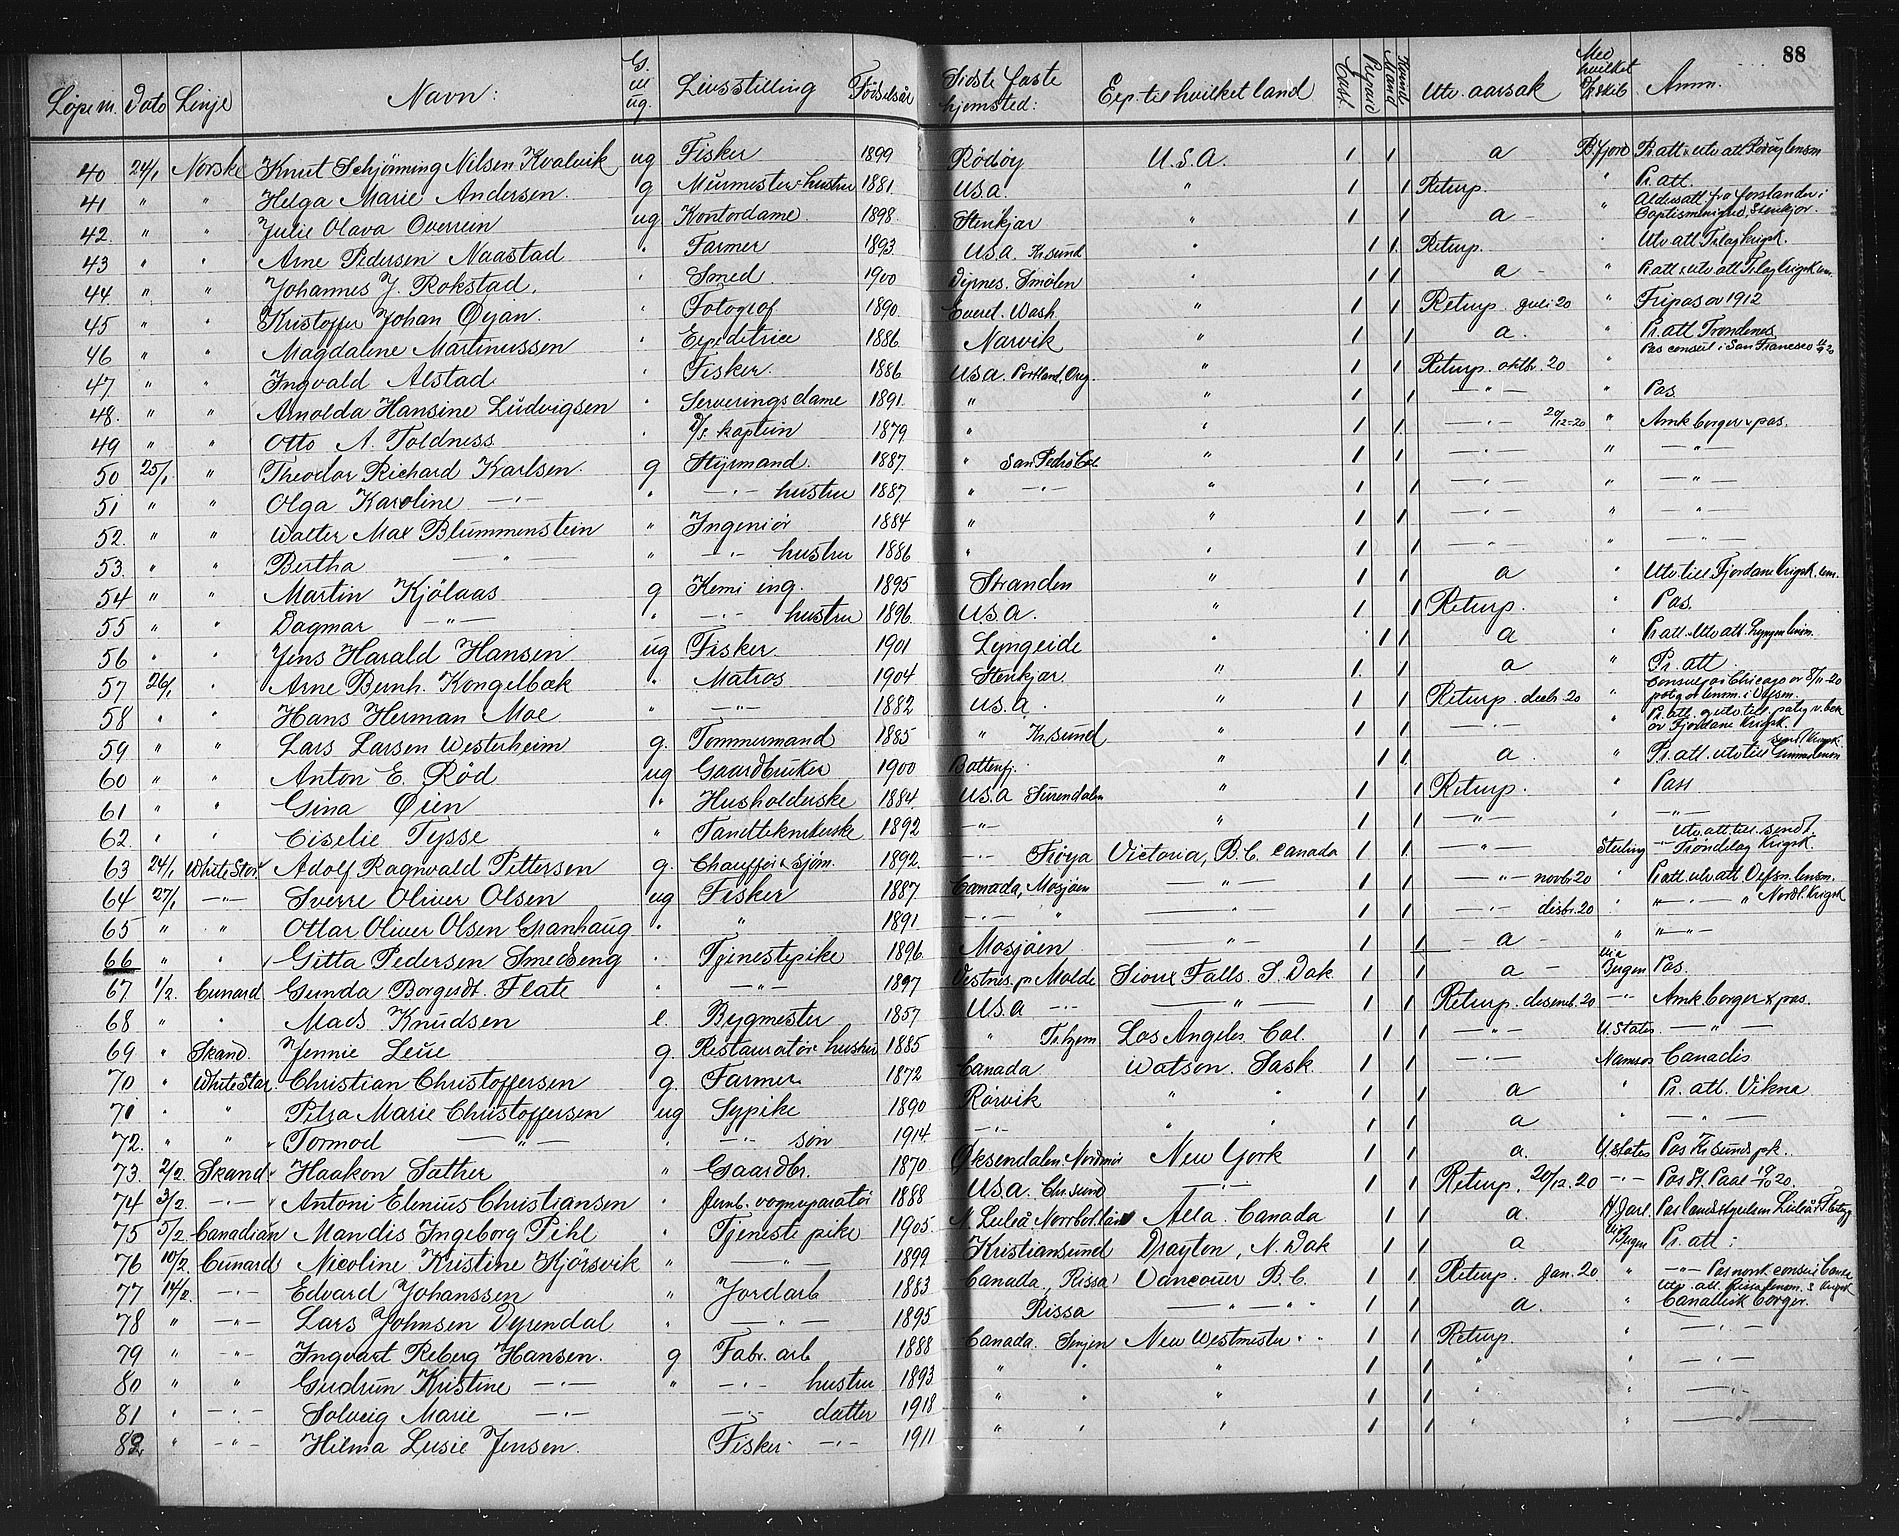 88
Löpe nr. Dato Linje Navn: G. ill ug. Livsstilling Födselsår Sidste faste hjemsted: Exp. til hvilket land By Mand Kvind Utv. aarsak Med hvilket skib Anm.
40 24/1 Norske Knut Schjönning Nilsen Kvalvik ug Fisker 1899 Rödöy U.S.A. 1 1 a B.fjord Pr. att. utv att Rödöy lensm
41 " " Helga Marie Andersen. g Murmester hustru 1881 U.S.a. " 1 1 Returp. " Pr. att.
42. " " Julie Olava Overrein ug Kontordame 1898. Stenkjær " 1 1 a " Aldersatt fra forstander i Baptismenighed, Stenkjær.
43 " " Arne Pedersen Naastad " Farmer 1893 U.S.a. Kr.sund " 1 1 Returp. " Utv. att. Tr.lag Krigsk.
44 " " Johannes J. Rokstad. " Smed 1900 Dyrnes. Smölen " 1 1 a " Pr. att. utv att Tr.lag Krigsk.
45 " " Kristoffer Johan Öyan. " Fotograf 1890. Everet. Wash. " 1 1 Returp. juli 20 " Fripas av 1912
46 " " Magdalene Martinussen " Expeditrice 1886 Narvik " 1 1 a. " Pr. att Trondenes
47 " " Ingvald Alstad " Fisker. 1886 U.S.a. Portland, Oreg. " 1 1 Returp. oktbr. 20 " Pas consul i San Francisco
48. " " Arnolda Hansine Ludvigsen " Serveringsdame 1891. " " 1 1 — " — " Pas
49 " " Otto A. Toldness " D/s. kaptein 1879 " " 1 1 — " — 29/12-20 " Amk borger & pas.
50 25/1. " Theodor Richard Karlsen. g Styrmand. 1887. " San Pedro Cal. " 1 1 — " — " — " —
51 " " Olga Karoline — " — " — " — hustru 1887 " — " — " 1 1 — " — " — " —
52. " " Walter Max Blummenstein " Ingeniör 1884 " " 1 1 — " — " — " —
53. " " Bertha — " — " — " — hustru 1886 " " 1 1 — " — " — " —
54 " " Martin Kjölaas g Kemi ing. 1895 Stranden " 1 1 a " Utv. till Fjordane Krigsk.
55 " " Dagmar — " — " — " — hustru 1896 U.S.a. " 1 1 Returp. " Pas.
56 " " Jens Harald Hansen ug Fisker 1901 Lyngeide " 1 1 a " Pr att. Utv att. Lyngen lensm.
57 26/1 " Arne Bernh. Kongelbæk " Matros 1904 Stenkjær " 1 1 a " Pr. att.
58 " " Hans Herman Moe " — " — 1882 U.S.a. " 1 1 Returp. decb. 20 " Consulpas Chicago av 8/11-20
59 " " Lars Larsen Westerheim g. Tömmermand 1885 " Kr.sund " 1 1 — " — " av Fjordane Krigsk.
60 " " Anton E. Röd ug Gaardbruker 1900 Battenfj. " 1 1 a. " Pr. att. utv till
61 " " Gina Öien " Husholderske 1884 U.S.a Surendalen " 1 1 Returp. " Pass
62. " " Ciselie Tysse " Tandteknikerske 1892 — " — " 1 1 — " — " — " —
63 24/1 White Star Adolf Ragnvald Pettersen g. Chaufför & sjöm. 1892. — " — Fröya Victoria, B.C. Canada 1 1 — " — Sterling Utv. att. till. sendt. Tröndelag Krigsk.
64 27/1 — " — Sverre Oliver Olsen ug Fisker 1887 Canada, Mosjöen — " — 1 1 — " — novbr 20 " Pr att. utv att. Vefsn. lensm.
65 " " Ottar Oliver Olsen Granhaug " " 1891 — " — " — " — 1 1 — " — disbr. 20 " — " — " Nordl. Krigsk
66 " " Gitta Pedersen Smedseng " Tjenestepike 1896. Mosjöen — " — 1 1 - a - " — " —
67 1/2. Cunard Gunda Borgerdt. Flate " — " — 1897 Vestnes. pr Molde Sioux Falls. S. Dak. 1 1 a — via Bergen Pas.
68 " " Mads Knudsen e. Bygmester 1857 U.S.a — " — — " — 1 1 Returp. desemb. 20 — " — Amk borger & pas.
69 " Skand. Jennie Leue g. Restauratör hustru 1885 " Tr.hjem Los Angeles Cal. 1 1 — " — U. States — " —
70 " White Star Christian Christoffersen g. Farmer 1872 Canada Watson. Sask. 1 1 — " — Namsos Canadis
71 " " Petra Marie Christoffersen ug Sypike 1890 Rörvik " " 1 1 a " Pr. att. Vikna
72. " " Tormod — " — " — " — sön 1914. — " — " " 1 1 a " — " —
73. 2/2 Skand. Haakon Sæther " Gaardbr. 1870 Öksendalen, Nordmör New York 1 1 a. U. States Pas Kr.sunds pk.
74 3/2. — " — Antoni Elenius Christiansen " Jernb. vognreparatör 1888 U.S.a. Chr.sund — " — 1 1 Returp. 20/12. 20 — " —
75 5/2 Canadian Mandis Ingeborg Pihl " Tjenestepike 1905. N. Luleå Norrbotten Alta. Canada 1 1 a. H. Jarl.
76 10/2. Cunard Nicoline Kristine Kjörsvik " — " — 1899 Kristiansund Drayton, N. Dak 1 1 a Bergen Pr. att:
77 14/2 — " — Edvard Johanssen " Jordarb 1883 Canada, Rissa Vancouver B.C. 1 1 Returp. Jan. 20 "
78 " — " — Lars Johnsen Dyrendal " — " — 1895 Rissa — " — " — 1 1 a. " Utv. att. Rissa lensm.
79 " — " — Ingvart Reberg Hansen. g Fabr. arb 1888 Canada. Senjen New Westmister " " 1 1 Returp. " Canadisk borger.
80 " " Gudrun Kristine — " — " — " — hustru 1893 " " " 1 1 " " — " —
81 " — " — Solveig Marie — " — — " — datter 1918 " " " 1 1 " " — " —
82 " — " — Hilma Lusie Jensen. Fisker — " — 1911 " " " 1 1 " " — " —